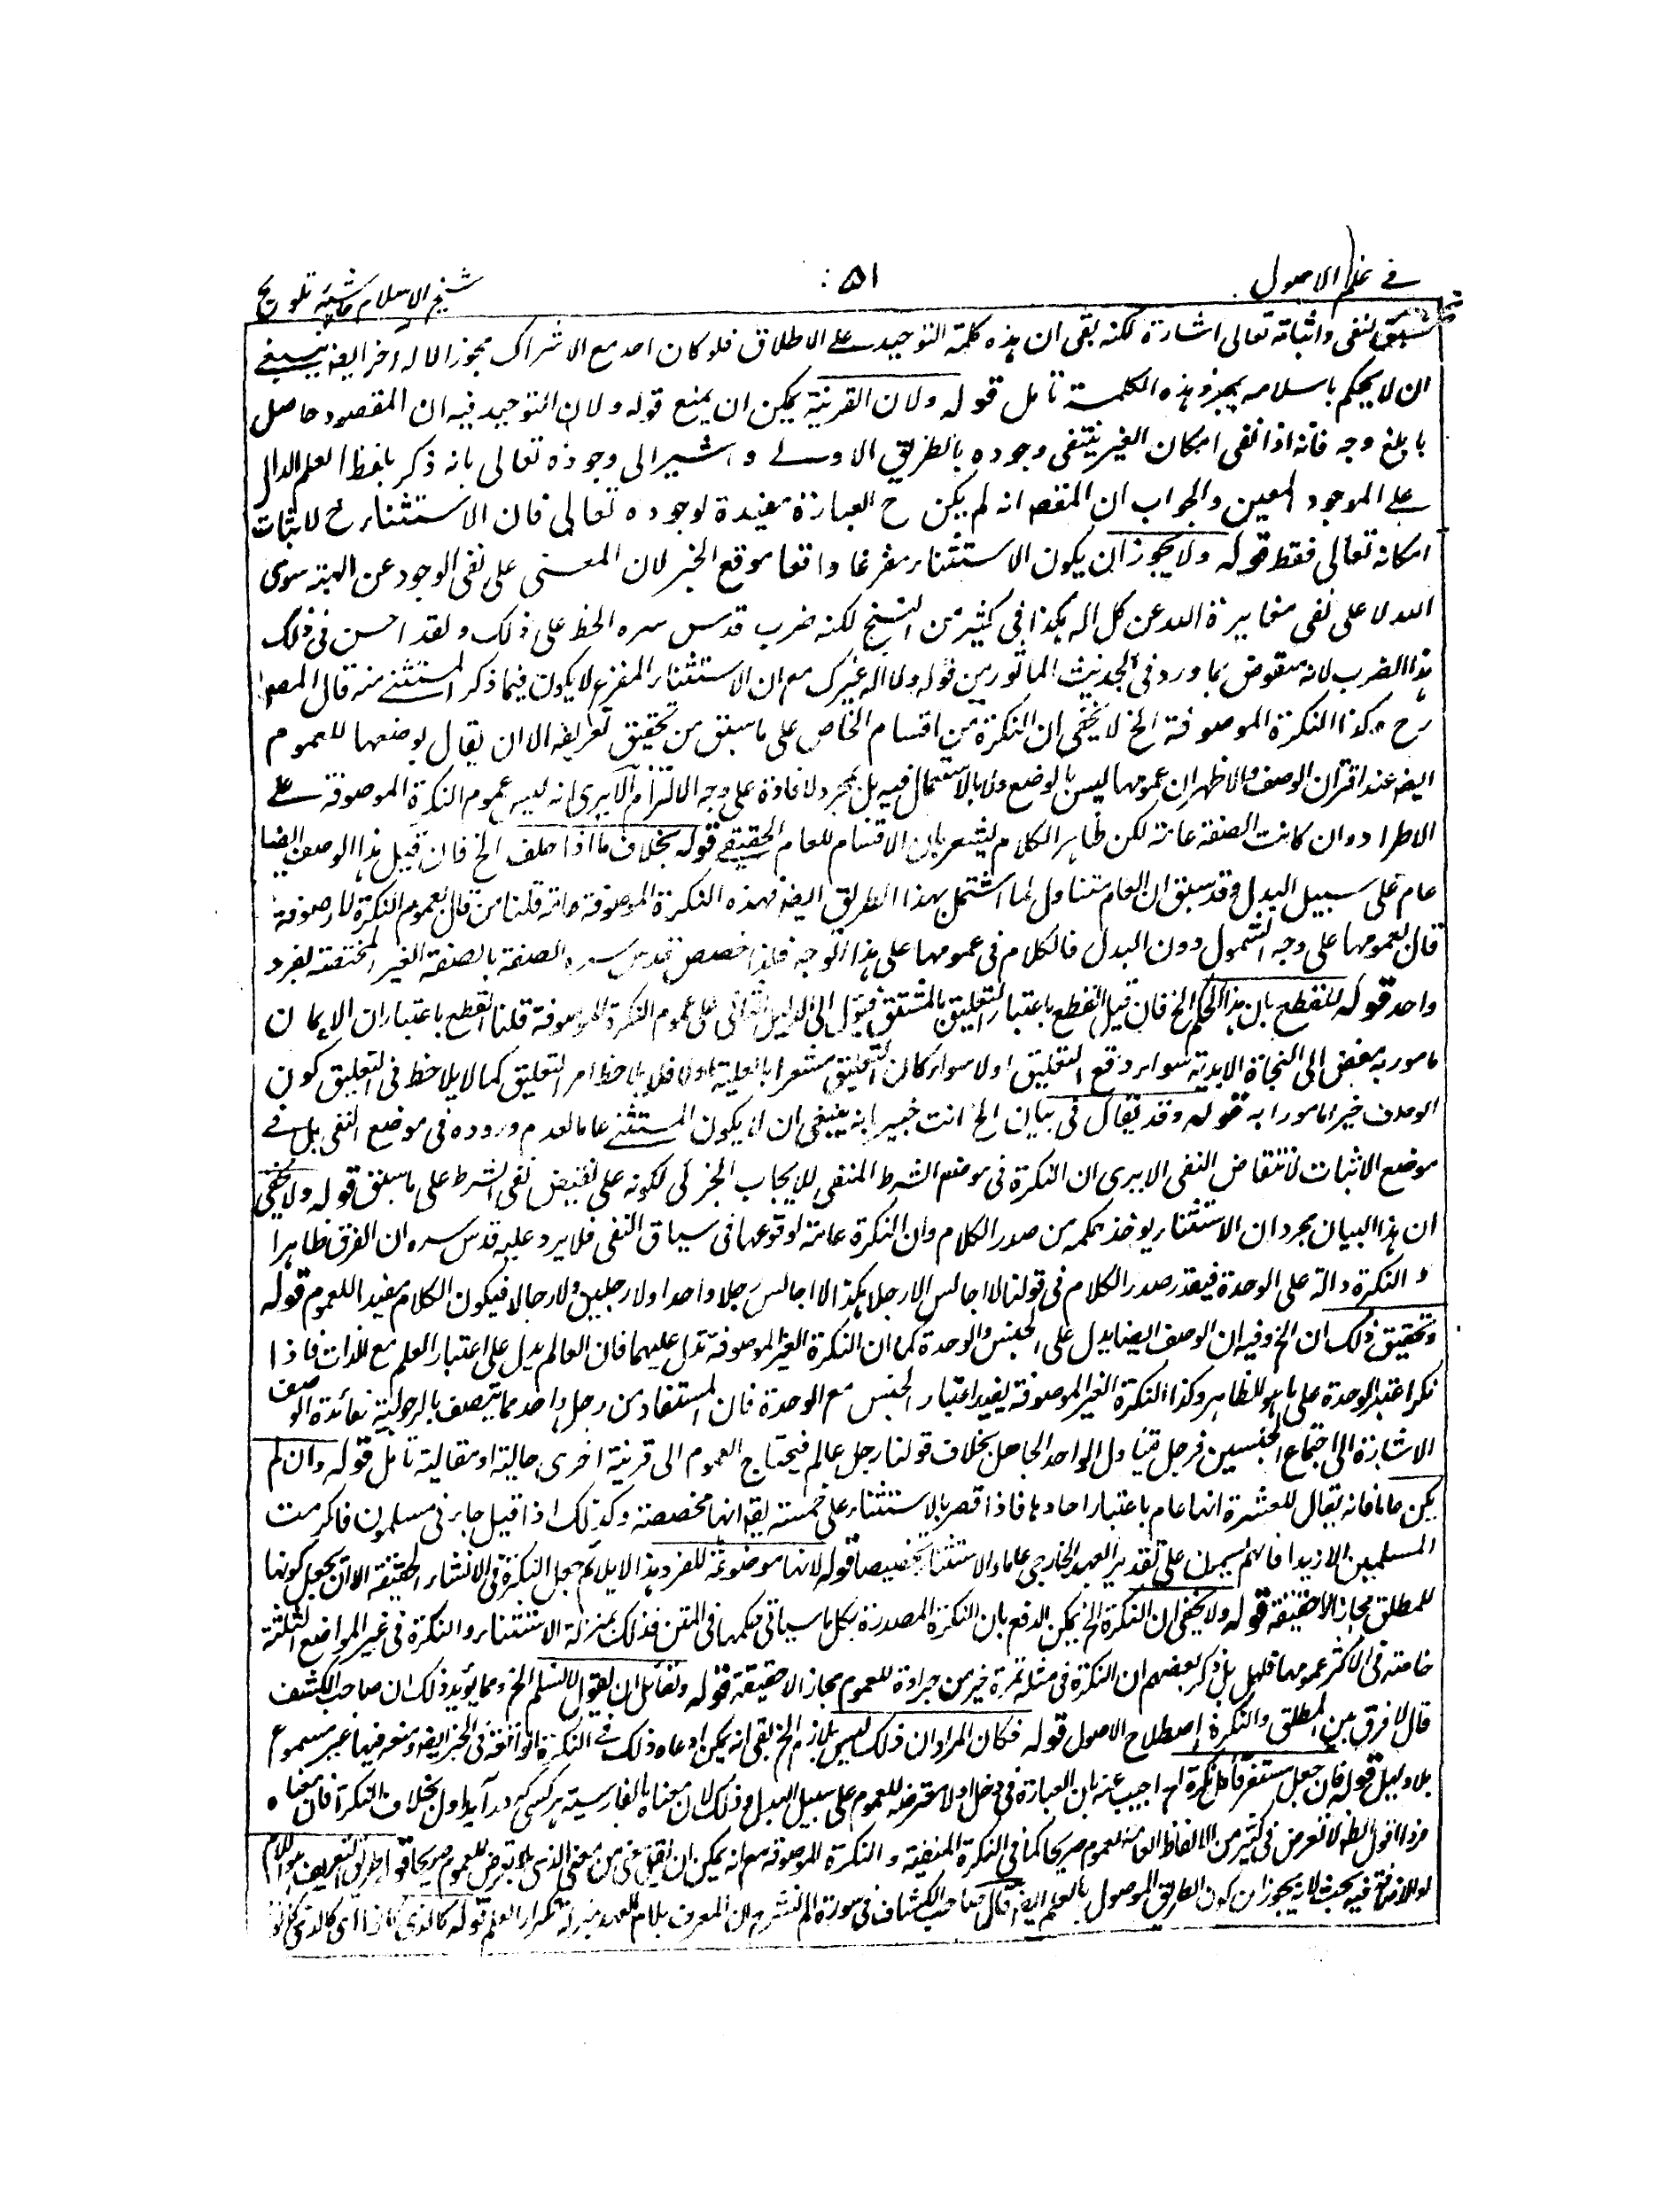 في علم الاصول
٥١
شيخ الاسلام حاشيه تلويح
سبق لنفى واثباته تعالى اشارة لكنه بقى ان هذه كلمة التوحيد على الاطلاق فلو كان احد مع الاشراك مجوز الاله اخر ايضا ينبغي
ان لا يحكم باسلامه بمجرد هذه الكلمة تامل قوله ولان القرينة يمكن ان يمنع قوله ولان التوحيد فيه ان المقصود حاصل
بابلغ وجه فانه اذا نفى امكان الغير ينتفى وجوده بالطريق الاولى واشير الى وجوده تعالى بانه ذكر بلفظ العلم الدال
على الموجود المعين والجواب ان المقصد انه لم يكن ح العبارة مفيدة لوجوده تعالى فان الاستثناء ح لاثبات
امكانه تعالى فقط قوله ولا يجوز ان يكون الاستثناء مفرغا واقعا موقع الخبر لان المعنى على نفى الوجود عن الهة سوى
الله لا على نفى مغايرة الله عن كل اله هكذا في كثير من النسخ لكنه ضرب قدس سره الخط على ذلك ولقد احسن فى ذلك
هذا الضرب لانه منقوض بما ورد فى الحديث الماثور من قوله ولا اله غيرك مع ان الاستثناء المفرغ لا يكون فيما ذكر المستثنى منه قال المصـ
رح وكذا النكرة الموصوفة الخ لا يخفى ان النكرة من اقسام الخاص على ما سبق من تحقيق تعريفه الا ان يقال بوضعها للعموم
ايضا عند اقتران الوصف والاظهر ان عمومها ليس بالوضع ولا بالاستعمال فيه بل بمجرد لافادة على وجه الالتزام الا يرى انه ليس عموم النكرة الموصوفة على
الاطراد وان كانت الصفة عامة لكن ظاهر الكلام يشعر بان الاقسام للعام الحقيقي قوله بخلاف ما اذا حلف الخ فان قيل هذا الوصف ايضا
عام على سبيل البدل وقد سبق ان العام متناول لما اشتمل بهذا الطريق ايضا فهذه النكرة الموصوفة عامة قلنا من قال بعموم النكرة الموصوفة
قال بعمومها على وجه الشمول دون البدل فالكلام فى عمومها على هذا الوجه فلذا خصص قدس سره الصفة بالصفة الغير المختصة بفرد
واحد قوله للقطع بان هذا الحكم الخ فان قيل القطع باعتبار التعليق بالمشتق فيئول الى الدليل الثانى على عموم النكرة الموصوفة قلنا القطع باعتبار ان الايمان
مامور به مفض الى النجاة الابدية سواء وقع التعليق اولا سواء كان التعليق مشعرا بالعلية اولا فلا يلاحظ امر التعليق كما لا يلاحظ فى التعليق كون
الوصف خيرا مامورا به قوله وقد يقال فى بيان الخ انت خبير بانه ينبغى ان لا يكون المستثنى عاما لعدم وروده فى موضع النفى بل فى
موضع الاثبات لانتقاض النفى الا يرى ان النكرة فى موضع الشرط المنفى للايجاب الجزئى لكونه على نقيض نفى الشرط على ما سبق قوله ولا يخفى
ان هذا البيان بمجرد ان الاستثناء يوخذ حكمه من صدر الكلام وان النكرة عامة لوقوعها فى سياق النفى فلا يرد عليه قدس سره ان الفرق ظاهرا
والنكرة دالة على الوحدة فيقدر صدر الكلام فى قولنا لا اجالس الا رجلا هكذا لا اجالس رجلا واحدا ولا رجلين ولا رجالا فيكون الكلام مفيدا للعموم قوله
وتحقيق ذلك ان الخ وفيه ان الوصف ايضا يدل على الجنس والوحدة كما ان النكرة الغير الموصوفة تدل عليهما فان العالم يدل على اعتبار العلم مع الذات فاذا
نكر اعتبر الوحدة على ما هو الظاهر وكذا النكرة الغير الموصوفة يفيد اعتبار الجنس مع الوحدة فان المستفاد من رجل واحد مما يتصف بالرجولية فائدة الوصف
الاشارة الى اجتماع الجنسين فرجل يتناول الواحد الجاهل بخلاف قولنا رجل عالم فيحتاج العموم الى قرينة اخرى حالية او مقالية تامل قوله وان لم
يكن عاما فانه يقال للعشرة انها عام باعتبار احادها فاذا قصر بالاستثناء على خمسة يقا انها مخصصة وكذلك اذا قيل جاءنى مسلمون فاكرمت
المسلمين الا زيدا فانهم يسمون على تقدير العهد الخارجى عاما والاستثناء تخصيصا قوله لانها موضوعة للفرد هذا لا يلائم جعل النكرة فى الانشاء الحقيقة الا ان يجعل كونها
للمطلق مجازا لا حقيقة قوله ولا يخفى ان النكرة الخ يمكن الدفع بان النكرة المصدرة بكل ما سياتى حكمها فى المتن فذلك بمنزلة الاستثناء والنكرة فى غير المواضع الثلثة
خاصة فى الاكثر عمومها قليل بل ذكر بعضهم ان النكرة فى مثله تمرة خير من جرادة للعموم مجازا لا حقيقة قوله ولقائل ان يقول لا نسلم الخ ومما يؤيد ذلك ان صاحب الكشف
قال لا فرق بين المطلق والنكرة اصطلاح الاصول قوله فكان المراد ان ذلك ليس بلازم الخ بقى انه يمكن ادعاء ذلك فى النكرة الواقعة فى الخبر ايضا ومنعه فيها غير مسموع
بلا دليل قوله فان جعل مستغرقا لكل نكرة الخ اجيب عنه بان العبارة فى دخل اولا متعرضة للعموم على سبيل البدل وذلك لان معناه بالفارسية هر كسى كه در آيد اول بخلاف النكرة فان معناه
فرد اقول الظ لا تعرض فى كثير من الالفاظ العامة للعموم صريحا كما فى النكرة المنفية والنكرة الموصوفة مع انه يمكن ان يقال من معنى الذى بلا تعرض للعموم صريحا قوله طريق التعريف هو اللام
او الاضافة فيه بحث لانه يجوز ان يكون الطريق الموصول بالعلم ايضا قال صاحب الكشاف فى سورة الم نشرح ان المعرف بلام العهد بمنزلة تكرار العلم قوله كالذى